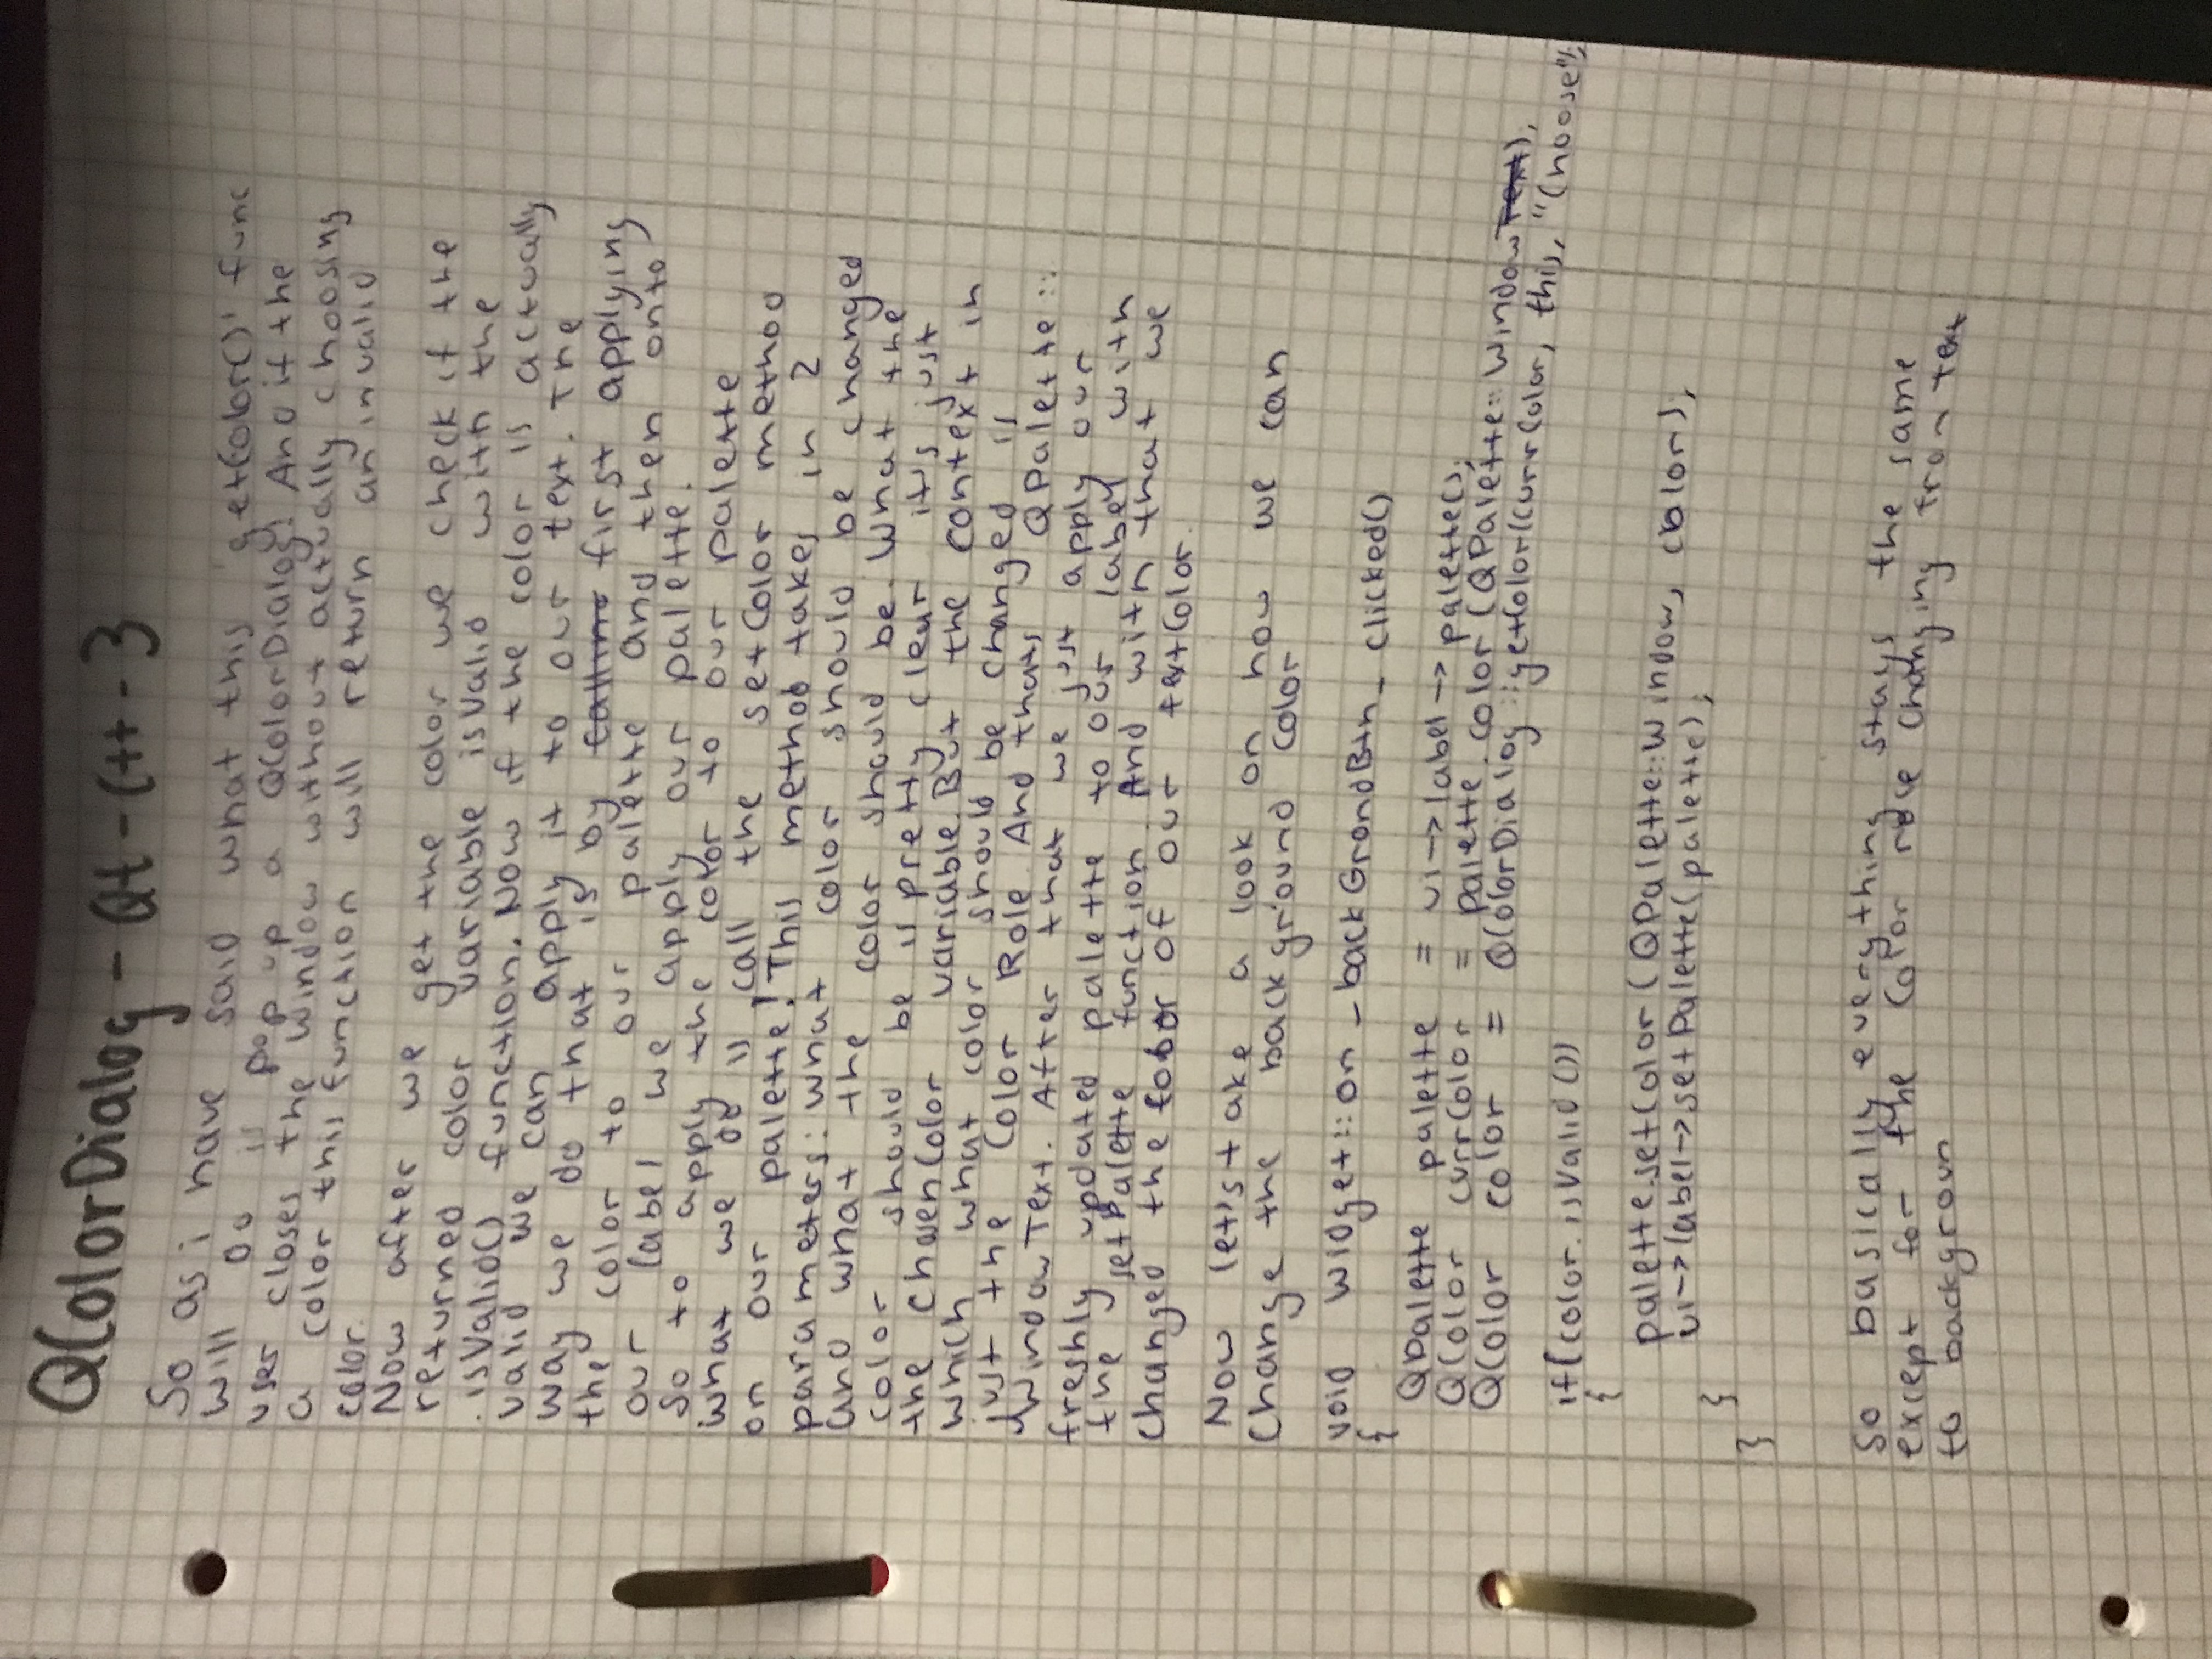 QColorDialog - Qt - C++ - 3
So as i have said what this 'getColor()' func
will do is pop up a QColorDialog! And if the
user closes the window without actually choosing
a color this function will return an invalid
color.
Now after we get the color we check if the
returned color variable isValid with the
.isValid() function. Now if the color is actually
valid we can apply it to our text. The
way we do that is by first applying
the color to our palette and then onto
our label we apply our palette.
So to apply the color to our palette
what we do is call the setColor method
on our palette! This method takes in 2
parameters: what color should be changed
and what the color should be. What the
color should be is pretty clear it's just
the chosenColor variable. But the context in
which what color should be changed is
just the Color Role. And thats QPalette::
WindowText. After that we just apply our
freshly updated palette to our label with
the setPalette function. And with that we
changed the color of our textColor.
Now let's take a look on how we can
Change the background color
void Widget::on_backGrondBtn_clicked()
{
QPalette palette = ui->label->palette();
QColor currColor = palette.color(QPalette::Window);
QColor color = QColorDialog::getColor(currColor, this, "Choose");
if(color.isValid())
{
palette.setColor(QPalette::Window, color);
ui->label->setPalette(palette);
}
}
So basically everything stays the same
except for the Color role changing from text
to backgroun